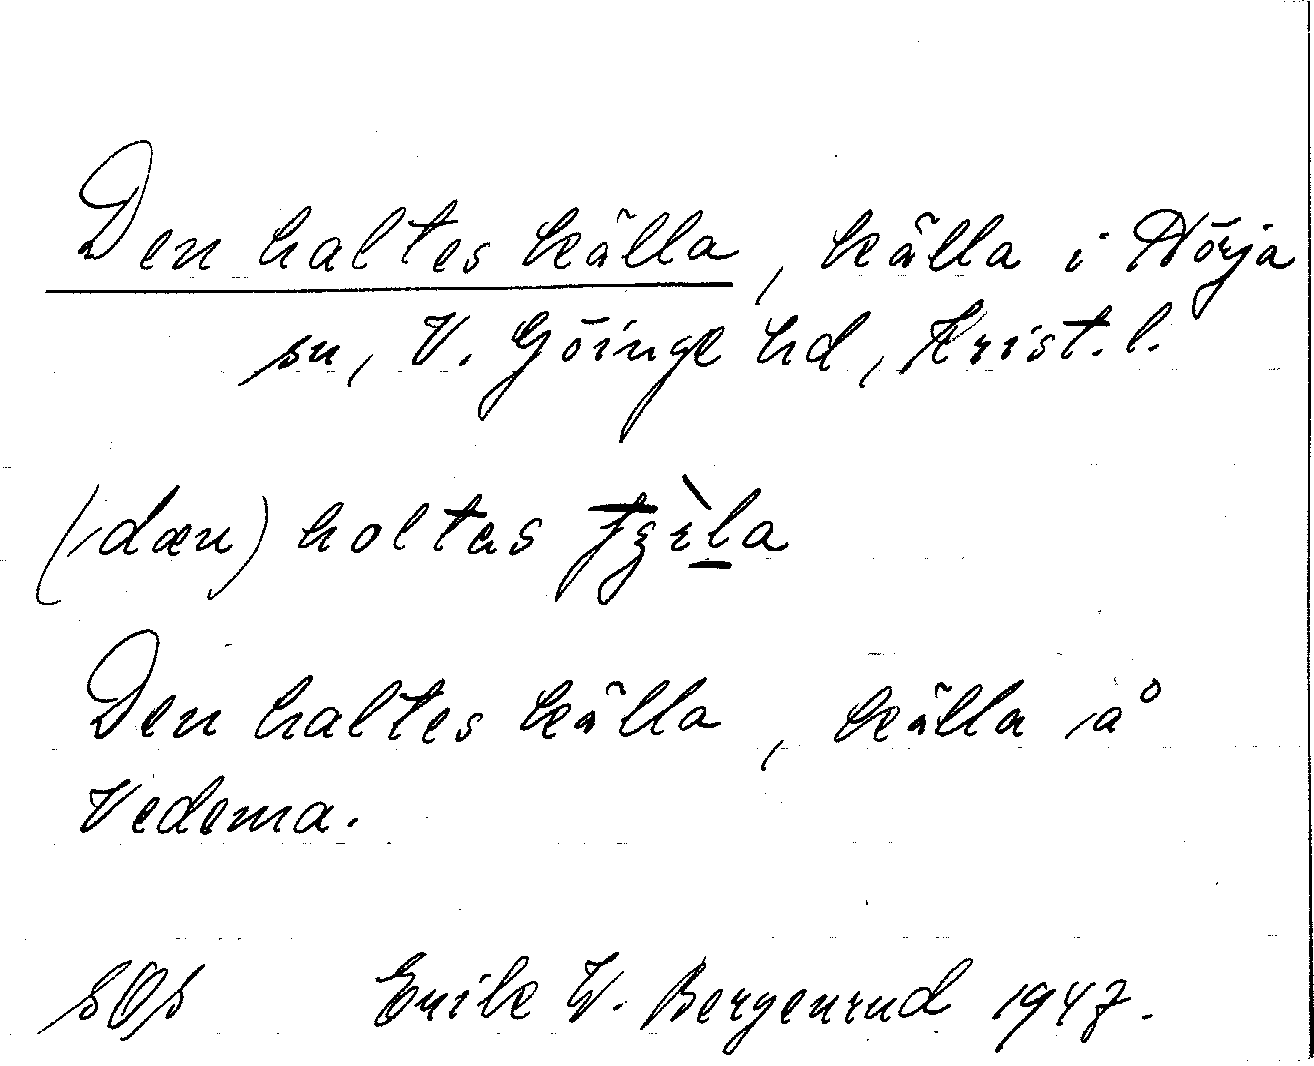 Den haltes källa, källa i Nörja
sn, V. Göinge hd, Krist. l.
(dæn) holtas
Den haltes källa, källa å
Vedema.
SOS Erik W. Bergenrud 1947.